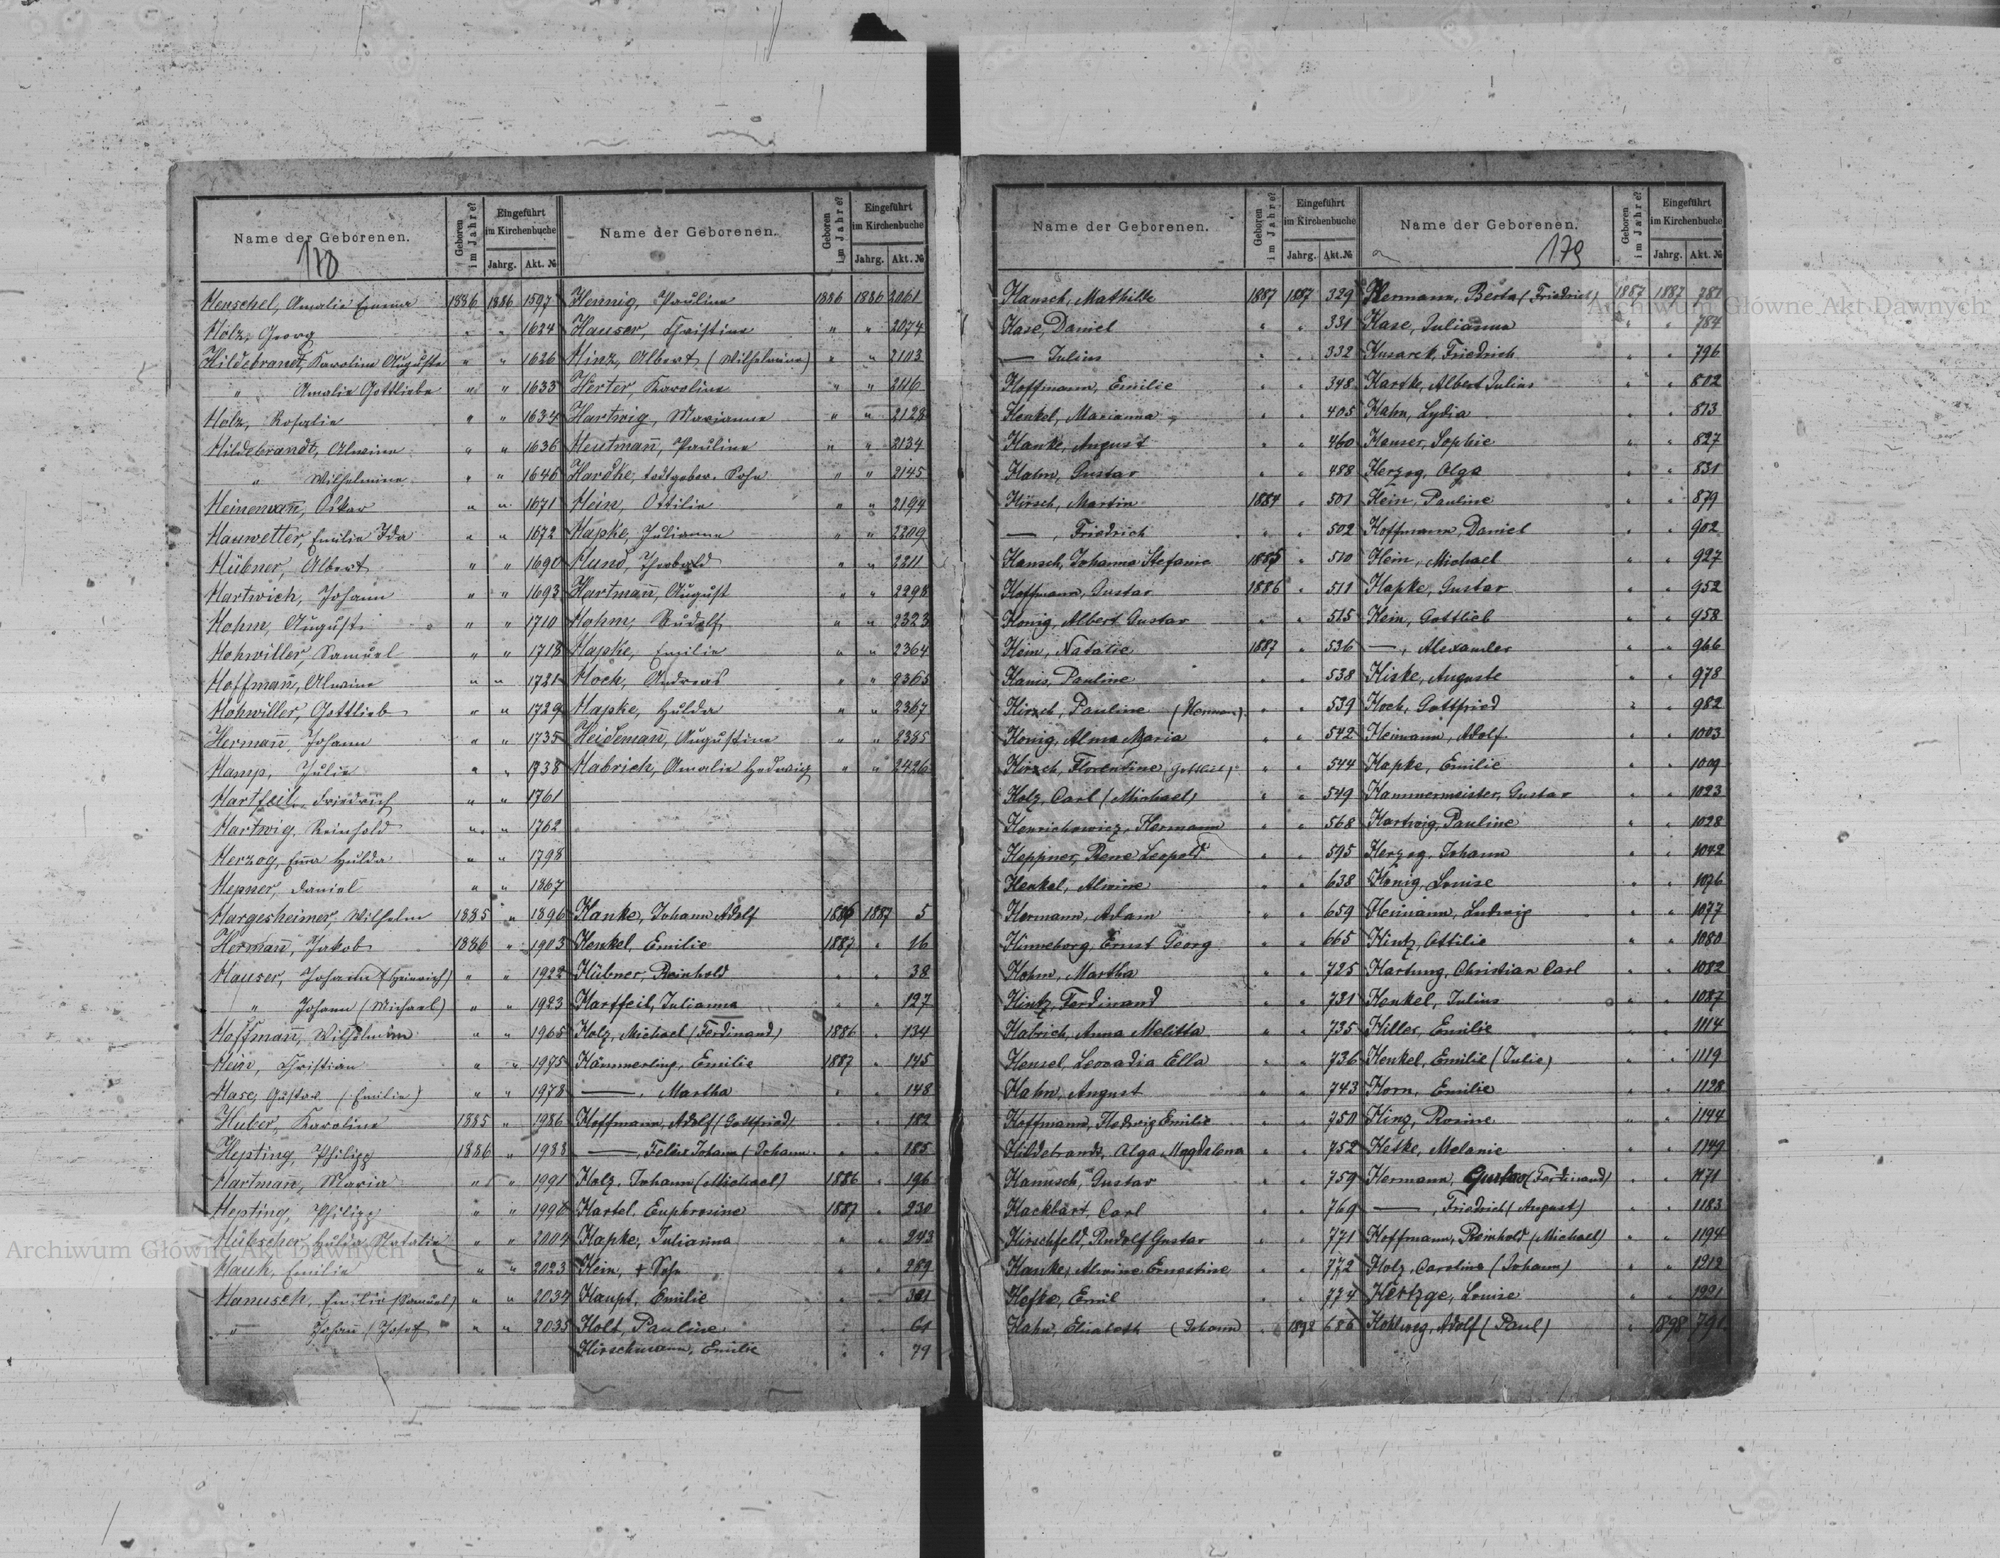 Name der Geborenen.
Geboren im Jahre?
Eingeführt im Kirchenbuche
Jahrg. Akt. №
Name der Geborenen.
Geboren im Jahre?
Eingeführt im Kirchenbuche
Jahrg. Akt. №
178
Henschel, Amalie Emma 1886 1886 1597
Holz, Georg " " 1624
Hildebrandt, Karoline Auguste " " 1626
" Amalie Gottliebe " " 1633
Holz, Rosalie " " 1634
Hildebrandt, Alwine " " 1636
" Wilhelmine " " 1646
Heinemann, Oskar " " 1671
Hauwetter, Emilie Ida " " 1672
Hübner, Albert " " 1690
Hartwich, Johann " " 1693
Hohm, August " " 1710
Hohwiller, Samuel " " 1718
Hoffmann, Alwine " " 1721
Hohwiller, Gottlieb " " 1729
Hermann, Johann " " 1735
Hamp, Julie " " 1738
Hartfeil, Friedrich " " 1761
Hartwig, Reinhold " " 1762
Herzog, Emma Hulda " " 1798
Hepner, Daniel " " 1867
Hargesheimer, Wilhelm 1885 " 1896
Hermann, Jakob 1886 " 1903
Hauser, Johann (Heinrich) " " 1922
" Johann (Michael) " " 1923
Hoffmann, Wilhelmine " " 1965
Hein, Christian " " 1975
Hase, Gustav (Emilie) " " 1978
Huber, Karoline 1885 " 1986
Hepting, Philipp 1886 " 1988
Hartman, Maria " " 1991
Hepting, Philipp " " 1996
Hübscher, Hulda Natalie " " 2004
Hauk, Emilie " " 2023
Hanusch, Emilie (Samuel) " " 2034
" Johann (Josef " " 2035
Hennig, Pauline 1886 1886 2061
Hauser, Christine " " 2074
Hinz, Albert (Wilhelmine) " " 2103
Herter, Karoline " " 2116
Hartwig, Marianne " " 2128
Heutmann, Pauline " " 2134
Hardke, todtgebor. Sohn " " 2145
Hein, Ottilie " " 2194
Hapke, Julianna " " 2209
Hund, Theobald " " 2211
Hartmann, August " " 2298
Hohm, Rudolf " " 2323
Hapke, Emilie " " 2364
Hoch, Andreas " " 2365
Hapke, Hulda " " 2367
Heidemann, Augustine " " 2385
Habrich, Amalie Hedwig " " 2426
Hanke, Johann Adolf 1886 1887 5
Henkel, Emilie 1887 " 16
Hübner, Reinhold " " 38
Hartfeil, Julianna " " 127
Holz, Michael (Ferdinand) 1886 " 134
Hämmerling, Emilie 1887 " 145
—, Martha " " 148
Hoffmann, Adolf (Gottfried) " " 182
—, Felix Johann (Johann " " 185
Holz, Johann (Michael) 1886 " 196
Hartel, Euphrosine 1887 " 230
Hapke, Julianna " " 243
Hein, † Sohn " " 289
Haupt, Emilie " " 321
Holt, Pauline " " 61
Hirschmann, Emilie " " 79
Name der Geborenen.
Geboren im Jahre?
Eingeführt im Kirchenbuche
Jahrg. Akt. №
Name der Geborenen.
Geboren im Jahre?
Eingeführt im Kirchenbuche
Jahrg. Akt. №
179
Hansch, Mathilde 1887 1887 329
Hase, Daniel " " 331
— Julius " " 332
Hoffmann, Emilie " " 348
Henkel, Marianna " " 405
Hanke, August " " 460
Hahn, Gustav " " 488
Hirsch, Martin 1884 " 501
—, Friedrich " " 502
Hansch, Johanna Stefanie 1885 " 510
Hoffmann, Gustav 1886 " 511
Honig, Albert Gustav " " 515
Hein, Natalie 1887 " 536
Hanis, Pauline " " 538
Hirsch, Pauline (Herman) " " 539
Honig, Alma Maria " " 542
Hirsch, Florentine (Gottlieb) " " 544
Holz, Carl (Michael) " " 549
Henrichowicz, Hermann " " 568
Heppner, Rene Leopold " " 595
Henkel, Alwine " " 638
Hermann, Adam " " 659
Hinneborg, Ernst Georg " " 665
Hohm, Martha " " 725
Hintz, Ferdinand " " 731
Habrich, Anna Melitta " " 735
Hensel, Leocadia Ella " " 736
Hahn, August " " 743
Hoffmann, Hedwig Emilie " " 750
Hildebrandt, Olga Magdalena " " 752
Hanusch, Gustav " " 759
Hackbart, Carl " " 769
Hirschfeld, Rudolf Gustav " " 771
Hanke, Alwine Ernestine " " 772
Hefke, Emil " " 774
Hahn, Elisabeth (Johann " 1898 686
Hermann, Berta (Friedrich) 1887 1887 781
Hase, Julianna " " 784
Husarek, Friedrich " " 796
Hartke, Albert Julius " " 802
Hahn, Lydia " " 813
Hauser, Sophie " " 827
Herzog, Olga " " 831
Hein, Pauline " " 879
Hoffmann, Daniel " " 902
Hein, Michael " " 927
Hapke, Gustav " " 952
Hein, Gottlieb " " 958
—, Alexander " " 966
Hiske, Auguste " " 978
Hoch, Gottfried " " 982
Heimann, Adolf " " 1003
Hapke, Emilie " " 1009
Hammermeister, Gustav " " 1023
Hartwig, Pauline " " 1028
Herzog, Johann " " 1042
Honig, Louise " " 1076
Heimann, Ludwig " " 1077
Hintz, Ottilie " " 1080
Hartung, Christian Carl " " 1082
Henkel, Julius " " 1087
Hiller, Emilie " " 1114
Henkel, Emilie (Julie) " " 1119
Horn, Emilie " " 1128
Hinz, Rosine " " 1144
Hetke, Melanie " " 1149
Hermann, Gustav (Ferdinand) " " 1171
—, Friedrich (August) " " 1183
Hoffmann, Reinhold (Michael) " " 1194
Holz, Caroline (Johann) " " 1212
Hertzge, Louise " " 1221
Adolf (Paul) " 1898 791
Archiwum Główne Akt Dawnych
Archiwum Główne Akt Dawnych